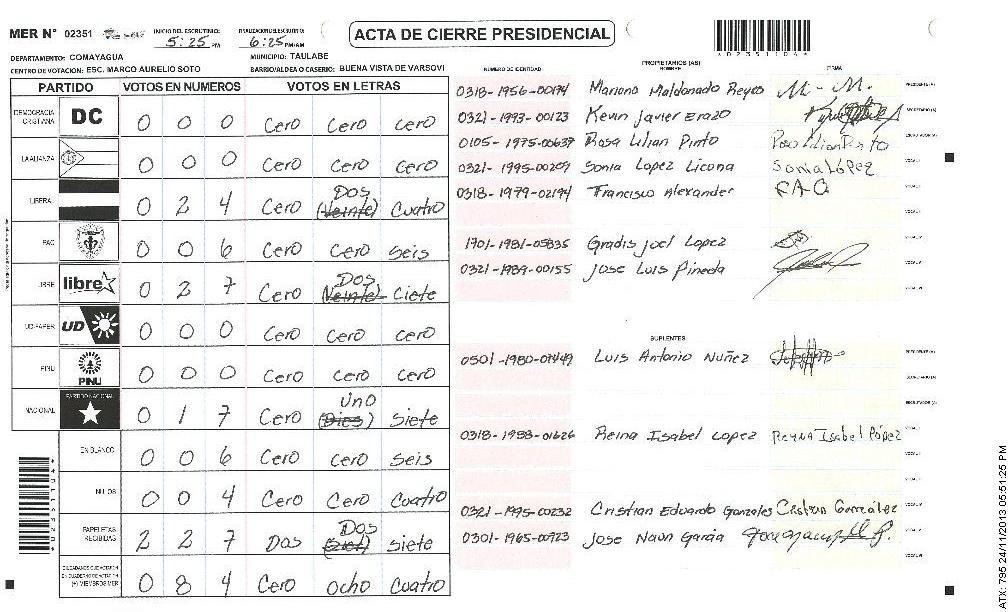 MER N° 02351
INICIO DEL ESCRUTINIO: 5:25 PM
FINALIZACION DEL ESCRUTINIO: 6:25 PM/AM
ACTA DE CIERRE PRESIDENCIAL
*02351104*
DEPARTAMENTO: COMAYAGUA
MUNICIPIO: TAULABE
CENTRO DE VOTACION: ESC. MARCO AURELIO SOTO
BARRIO/ALDEA O CASERIO: BUENA VISTA DE VARSOVI
PARTIDO VOTOS EN NUMEROS VOTOS EN LETRAS
DEMOCRACIA CRISTIANA DC 0 0 0 Cero Cero Cero
LA ALIANZA 0 0 0 Cero Cero Cero
LIBERAL 0 2 4 Cero Dos (Veinte) Cuatro
PAC 0 0 6 Cero Cero Seis
LIBRE libre 0 2 7 Cero Dos (Veinte) Ciete
UD-FAPER UD 0 0 0 Cero Cero Cero
PINU PINU 0 0 0 Cero Cero Cero
NACIONAL PARTIDO NACIONAL 0 1 7 Cero Uno (Dies) Siete
EN BLANCO 0 0 6 Cero Cero Seis
NULOS 0 0 4 Cero Cero Cuatro
PAPELETAS RECIBIDAS 2 2 7 Dos Dos Siete
CIUDADANOS QUE VOTARON EN CUADERNO DE VOTACION (+) MIEMBROS MER 0 8 4 Cero ocho Cuatro
NUMERO DE IDENTIDAD PROPIETARIOS (AS) NOMBRE FIRMA
0318-1956-00194 Mariano Maldonado Reyes M-M. PRESIDENTE (A)
0321-1993-00123 Kevin Javier Erazo SECRETARIO (A)
0105-1975-00637 Rosa Lilian Pinto ESCRUTADOR (A)
0321-1995-00209 Sonia Lopez Licona Sonia López VOCAL I
0318-1979-02194 Francisco Alexander
1701-1981-05835 Gradis Joel Lopez
0321-1989-00155 Jose Luis Pineda
SUPLENTES
0501-1980-01449 Luis Antonio Nuñez PRESIDENTE (A)
SECRETARIO (A)
ESCRUTADOR (A)
0318-1988-01626 Reina Isabel Lopez Reyna Isabel López
0321-1995-00232 Cristian Eduardo Gonzales Cristian González
0301-1965-00723 Jose Naun Garcia
ATX: 795 24/11/2013 05:51:25 PM